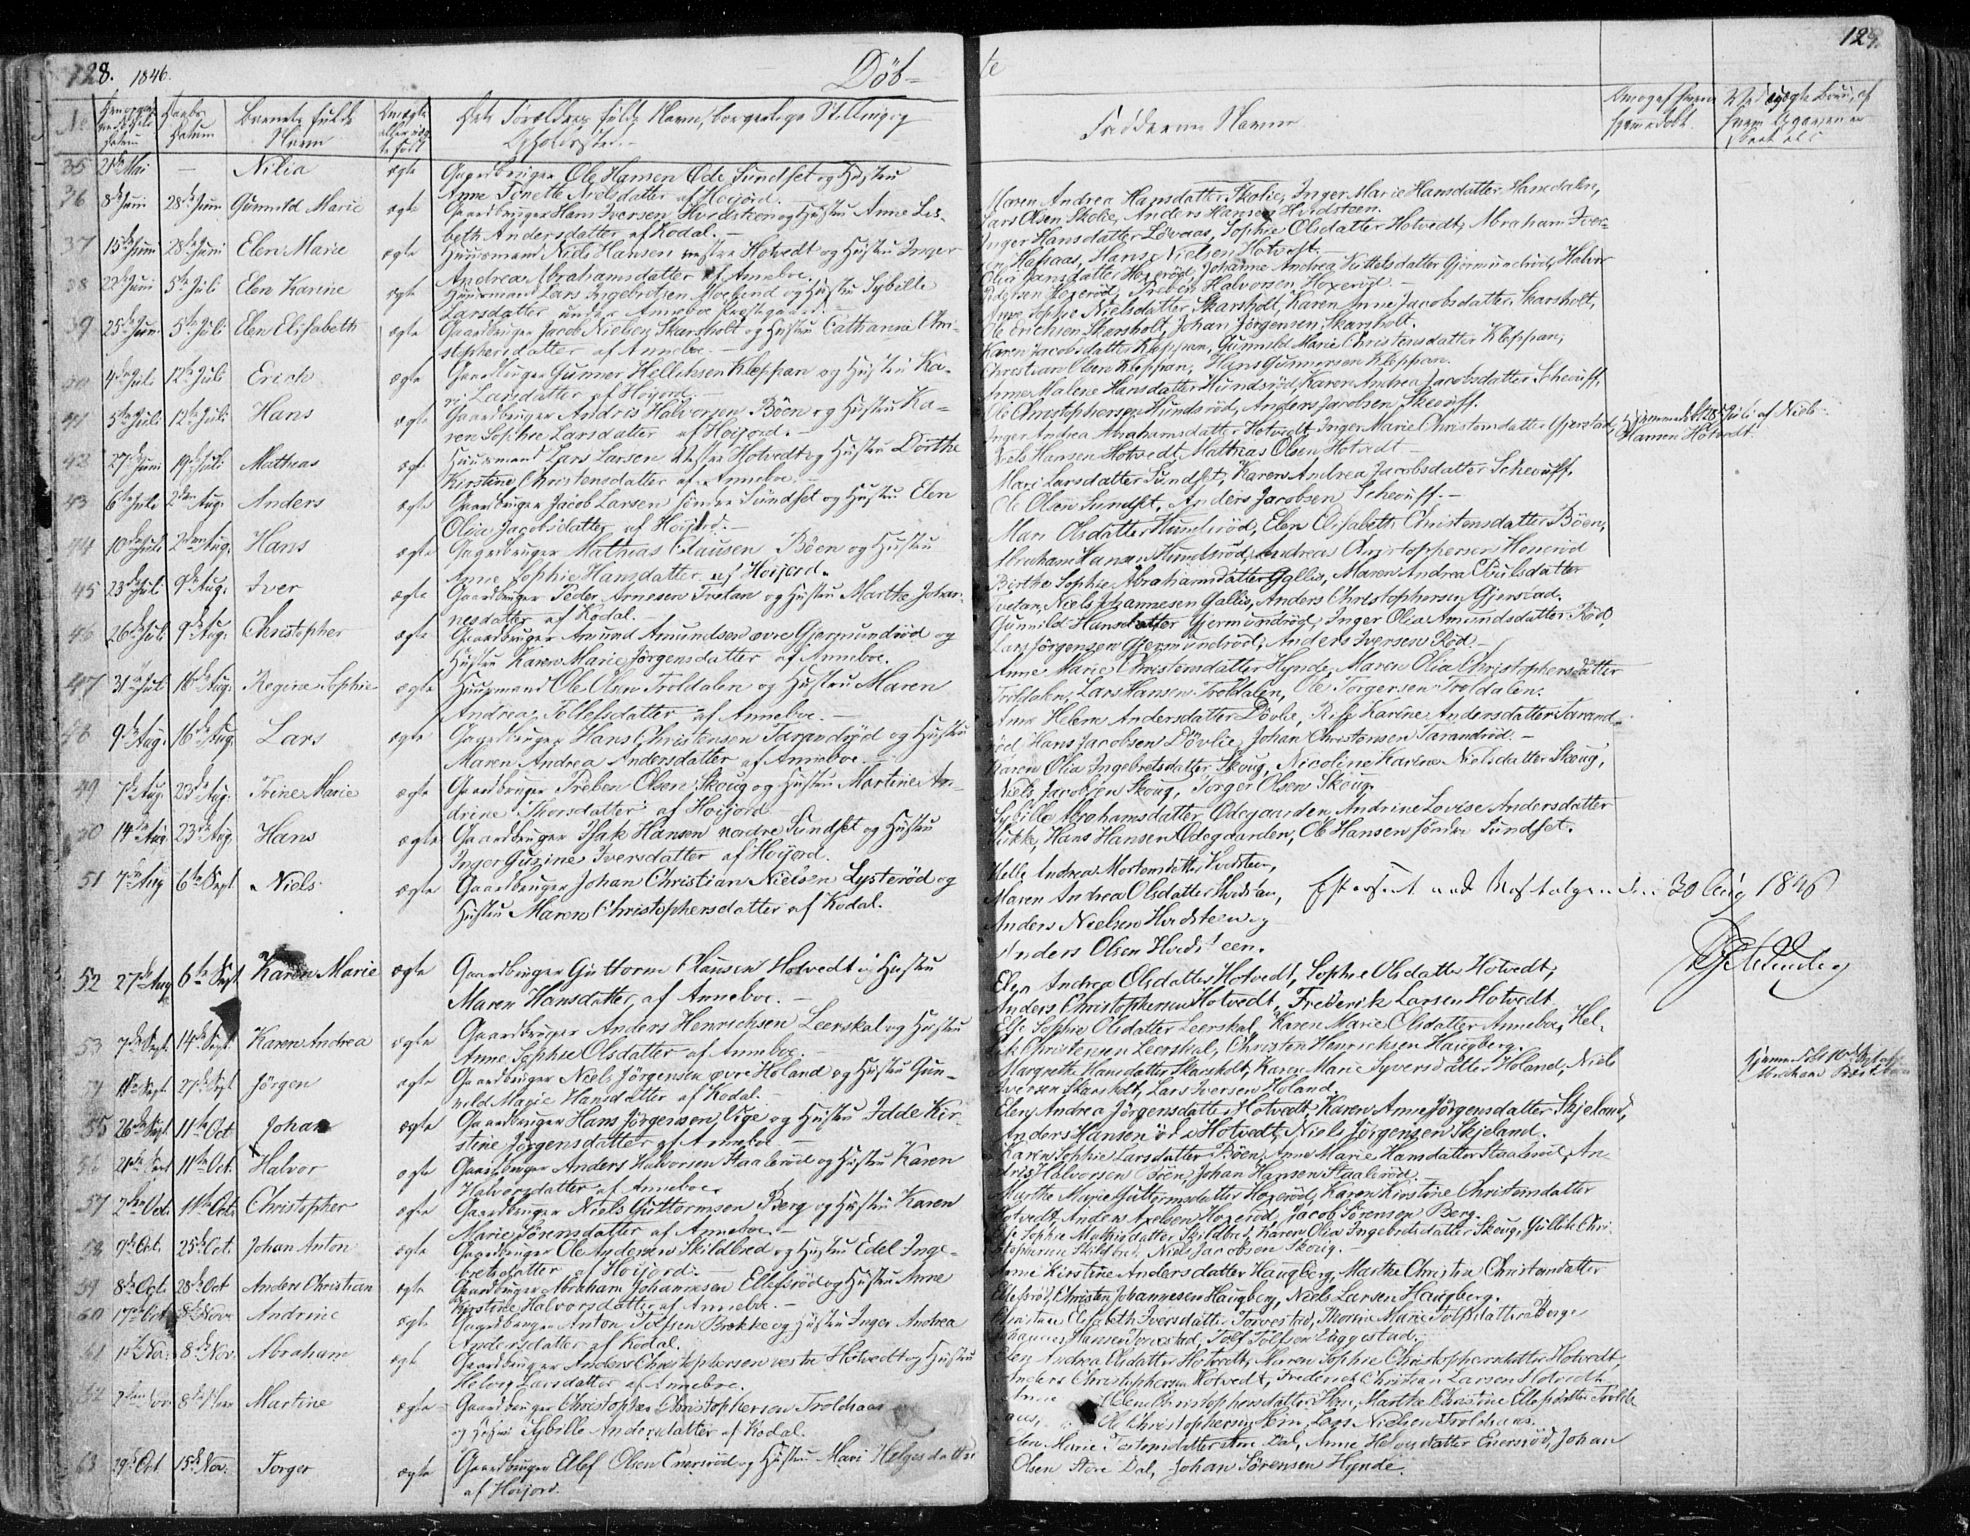 128. 1846. Döb-
No Barnets fulde Navn Forældres fulde Navn, borgerlige Stilling og
35 21de Mai — Nilia ægte Gaardbruger Ole Hansen Øde Sundset og Hustru
Anne Tonette Nielsdatter af Hoijord.
36 8de Juni 28de Juni Gunnild Marie ægte Gaardbruger Hans Iversen Hvidsteen og Hustru Anne Lis-
beth Andersdatter af Kodal. —
37 15de Juni 28de Juni Elen Marie ægte Huusmand Niels Hansen vestre Hotvedt og Hustru Inger
Andrea Abrahamsdatter af Anneboe.
38 22de Juni 5te Juli Elen Karine ægte Huusmand Lars Ingebretsen Moelund og Hustru Sybille
Larsdatter under Anneboe Præstegaard.
39 25de Juni 5te Juli Elen Elisabeth ægte Gaardbruger Jacob Nielsen Skarsholt og Hustru Cathrine Chri-
stophersdatter af Anneboe. —
40 4de Juli 12te Juli Erich ægte Gaardbruger Gunner Hellichsen Kleppan og Hustru Ka-
ri Larsdatter af Hoijord. —
41 5te Juli 12te Juli Hans ægte Gaardbruger Andris Halvorsen Böen og Hustru Ka-
ren Sophie Larsdatter af Hoijord. —
42 27de Juni 19de Juli Mathias ægte Huusmand Lars Larsen vestre Hotvedt og Hustru Dorthe
Kirstine Christensdatter af Anneboe. —
43 6te Juli 2den Aug. Anders ægte Gaardbruger Jacob Larsen söndre Sundset og Hustru Elen
Olia Jacobsdatter af Hoijord. —
44 10de Juli 2den Aug. Hans ægte Gaardbruger Mathias Clausen Böen og Hustru
Anne Sophie Hansdatter af Hoijord.
45 23de Juli 9de Aug. Iver ægte Gaardbruger Peder Arnesen Tvetan og Hustru Marthe Johan-
nesdatter af Kodal. —
46 26de Juli 9de Aug. Christopher ægte Gaardbruger Amund Amundsen övre Gjermundröd og
Hustru Karen Marie Jörgensdatter af Anneboe.
47 31te Juli 16de Aug. Regine Sophie ægte Huusmand Ole Olsen Troldalen og Hustru Maren
Andrea Tollefsdatter af Anneboe. —
48 9de Aug. 16de Aug. Lars ægte Gaardbruger Hans Christensen Tarandröd og Hustru
Maren Andrea Andersdatter af Anneboe. —
49 7de Aug. 23de Aug. Trine Marie ægte Gaardbruger Preben Olsen Skoug og Hustru Martine An-
drine Thorsdatter af Hoijord
50 14de Aug. 23de Aug. Hans ægte Gaardbruger Isak Hansen nordre Sundset og Hustru
Inger Gurine Iversdatter af Hoijord.
51 7de Aug 6te Sept Niels ægte Gaardbruger Johan Christian Nielsen Lysteröd og
Hustru Maren Christophersdatter af Kodal.
52 27de Aug 6te Sept Karen Marie ægte Gaardbruger Guttorm Clausen Hotvedt og Hustru
Maren Hansdatter af Anneboe. —
53 7de Sept. 14de Sept. Karen Andrea ægte Gaardbruger Anders Henrichsen Leerskal og Hustru
Anne Sophie Olsdatter af Anneboe. —
54 27de Sept Jörgen ægte Gaardbruger Niels Jörgensen övre Holand og Hustru Gun-
nild Marie Hansdatter af Kodal. —
55 26de Sept. 11te Oct Johan ægte Gaardbruger Hans Jörgensen Uige og Hustru Idde Kir-
stine Jörgensdatter af Anneboe —
56 21de Sept 11te Oct. Halvor ægte Gaardbruger Anders Halvorsen Staaleröd og Hustru Karen
Halvorsdatter af Anneboe.
57 2den Oct. 11te Oct. Christopher ægte Gaardbruger Niels Guttormsen Berg og Hustru Karen
Marie Sörensdatter af Anneboe. —
58 9de Oct. 25de Oct. Johan Anton ægte Gaardbruger Ole Andersen Skildbred og Hustru Edel Inge-
bretsdatter af Hoijord. —
59 8de Oct. 28de Oct Anders Christian ægte Gaardbruger Abraham Johannesen Ellefsröd og Hustru Anne
Kirstine Halvorsdatter af Anneboe. —
60 17de Oct 8de Nov. Andrine ægte Gaardbruger Anton Tolfsen Brække og Hustru Inger Andrea
Andersdatter af Kodal.
61 8de Nov. Abraham ægte Gaardbruger Anders Christophersen vestre Hotvedt og Hustru
Helvig Larsdatter af Anneboe.
62 8de Nov Martine ægte Gaardbruger Christopher Christophersen Troldhaas
og Hustru Sybille Andersdatter af Kodal.
63 29de Oct 15de Nov. Torger ægte Gaardbruger Ellef Olsen Enersröd og Hustru Mari Helgesdatter
af Hoijord.
te 129.
Faddernes Navne
Maren Andrea Hansdatter Skolie, Inger Marie Hansdatter Hanedalen,
Lars Olsen Skolie, Anders Hansen Hvidsteen.
Inger Hansdatter Lövaas, Sophie Olsdatter Hotvedt, Abraham Iver-
Hafsaas, Hans Nielsen Hotvedt.
Olia Hansdatter Hoxeröd, Johanne Andrea Kittelsdatter Gjermundröd, Halvor
Pedersen Hoxeröd, Preben Halvorsen Hoxeröd. —
Anne Sophie Nielsdatter Skarsholt, Karen Anne Jacobsdatter Skarsholt,
Ole Erichsen Skarsholt, Johan Jörgensen Skarsholt.
Karen Jacobsdatter Kleppan, Gunnild Marie Christensdatter Kleppan,
Christian Olsen Kleppan, Hans Gunnersen Kleppan.
Anne Malene Hansdatter Hundsröd, Karen Andrea Jacobsdatter Scheouff,
Ole Christophersen Hundsröd, Anders Jacobsen Skeouff.
Inger Andrea Abrahamsdatter Hotvedt, Inger Marie Christensdatter Gjerstad, Hjemmedöbt 28de Juni af Niels
Niels Hansen Hotvedt, Mathias Olsen Hotvedt — Hansen Hotvedt.
Mari Larsdatter Sundset, Karen Andrea Jacobsdatter Scheouff,
Ole Olsen Sundset, Anders Jacobsen Scheouff. —
Mari Olsdatter Hundsröd, Elen Elisabeth Christensdatter Böen,
Abraham Hansen Hundsröd, Andreas Christophersen Honeröd
Birthe Sophie Abrahamsdatter Gallis, Maren Andrea Paulsdatter
Tvetan, Niels Johannesen Gallis, Anders Christophersen Gjerstad.
Gunild Hansdatter Gjermundröd, Inger Olia Amundsdatter Röd,
Lars Jörgensen Gjermundröd, Anders Iversen Röd. —
Anne Marie Christensdatter Hynde, Maren Olia Christophersdatter
Troldalen, Lars Hansen Troldalen, Ole Torgersen Troldalen.
Anne Helene Andersdatter Dövlie, Karine Andersdatter Tarand-
röd, Hans Jacobsen Dövlie, Johan Christensen Tarandröd. —
Karen Olia Ingebretsdatter Skoug, Nicoline Karine Nielsdatter Skoug,
Niels Jacobsen Skoug, Torger Olsen Skoug.
Sybille Abrahamsdatter Ödegaarden, Andrine Lovise Andersdatter
Hans Hansen Ödegaarden, Ole Hansen söndre Sundset.
Helle Andrea Mortensdatter Hvidsteen,
Maren Andrea Olsdatter Hvidsteen, Efterseet ved Visitatsen den 30 Aug 1846
Anders Nielsen Hvidsteen og
Anders Olsen Hvidsteen.
Elen Andrea Olsdatter Hotvedt, Sophie Olsdatter Hotvedt,
Anders Christophersen Hotvedt, Frederik Larsen Hotvedt
Else Sophie Olsdatter Leerskal, Karen Marie Olsdatter Anneboe, Hel-
lik Christensen Leerskal, Christen Henrichsen Haugberg.
Margrethe Hansdatter Skarsholt, Karen Marie Syversdatter Holand, Niels
Iversen Skarsholt, Lars Iversen Holand
Elen Andrea Jörgensdatter Hotvedt, Karen Anne Jörgensdatter Skjeland,
Anders Hansen Hotvedt, Niels Jörgensen Skjeland.
Karen Sophie Larsdatter Böen, Anne Marie Hansdatter Staaleröd, An-
dris Halvorsen Böen, Johan Hansen Staaleröd.
Marthe Marie Guttormsdatter Hoxeröd, Karen Kirstine Christensdatter
Hotvedt, Anders Axelsen Hoxeröd, Jacob Sörensen Berg.
Else Sophie Mathisdatter Skildbred, Karen Olia Ingebretsdatter Skoug, Gullik Chri-
stophersen Skildbred, Niels Jacobsen Skoug. —
Anne Kirstine Andersdatter Haugberg, Marthe Christine Christensdatter
Ellefsröd, Christen Johannesen Haugberg, Niels Larsen Haugberg.
Christine Elisabeth Iversdatter Torvestad, Thorine Marie Tolfsdatter Berge
Hansen Torvestad, Tolf Tolfsen Laggestad.
Elen Andrea Olsdatter Hotvedt, Maren Sophie Christophersdatter Hotvedt,
Anders Christophersen Hotvedt, Frederich Christian Larsen Hotvedt
Christophersdatter Hem, Marthe Christine Ellefsdatter Trold-
haas, Ole Christophersen Hem, Lars Nielsen Troldhaas.
Elen Marie Torstensdatter Store Dal, Anne Helgesdatter Enersröd, Johan
Olsen Store Dal, Johan Sörensen Hynde.